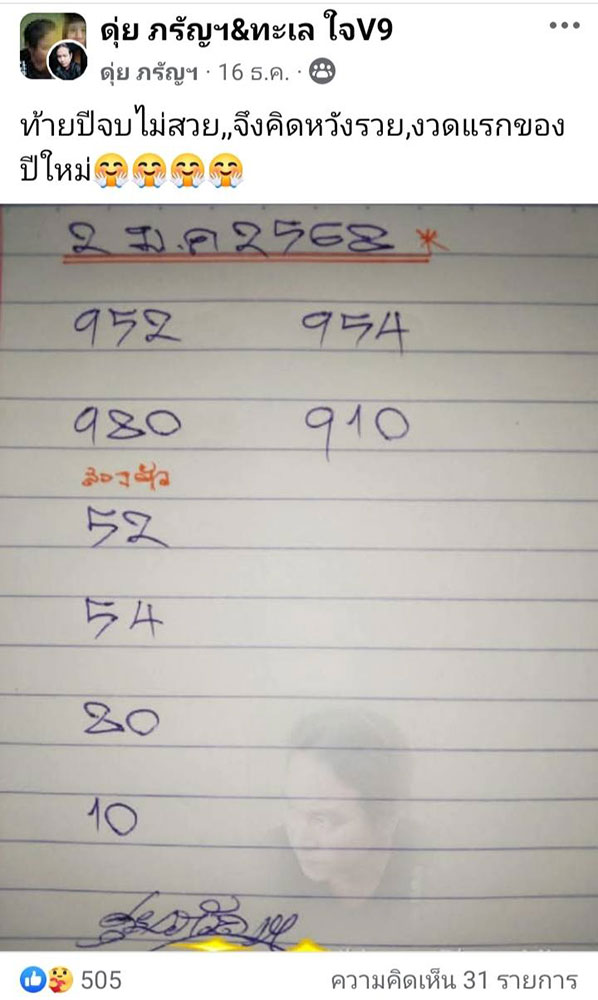 ดุ่ย ภรัญฯ&ทะเล ใจV9
ดุ่ย ภรัญฯ · 16 ธ.ค. ·
ท้ายปีจบไม่สวย,,จึงคิดหวังรวย,งวดแรกของ
ปีใหม่🤗🤗🤗🤗
2 ม.ค 2568 *
952 954
980 910
สองตัว
52
54
80
10
505 ความคิดเห็น 31 รายการ